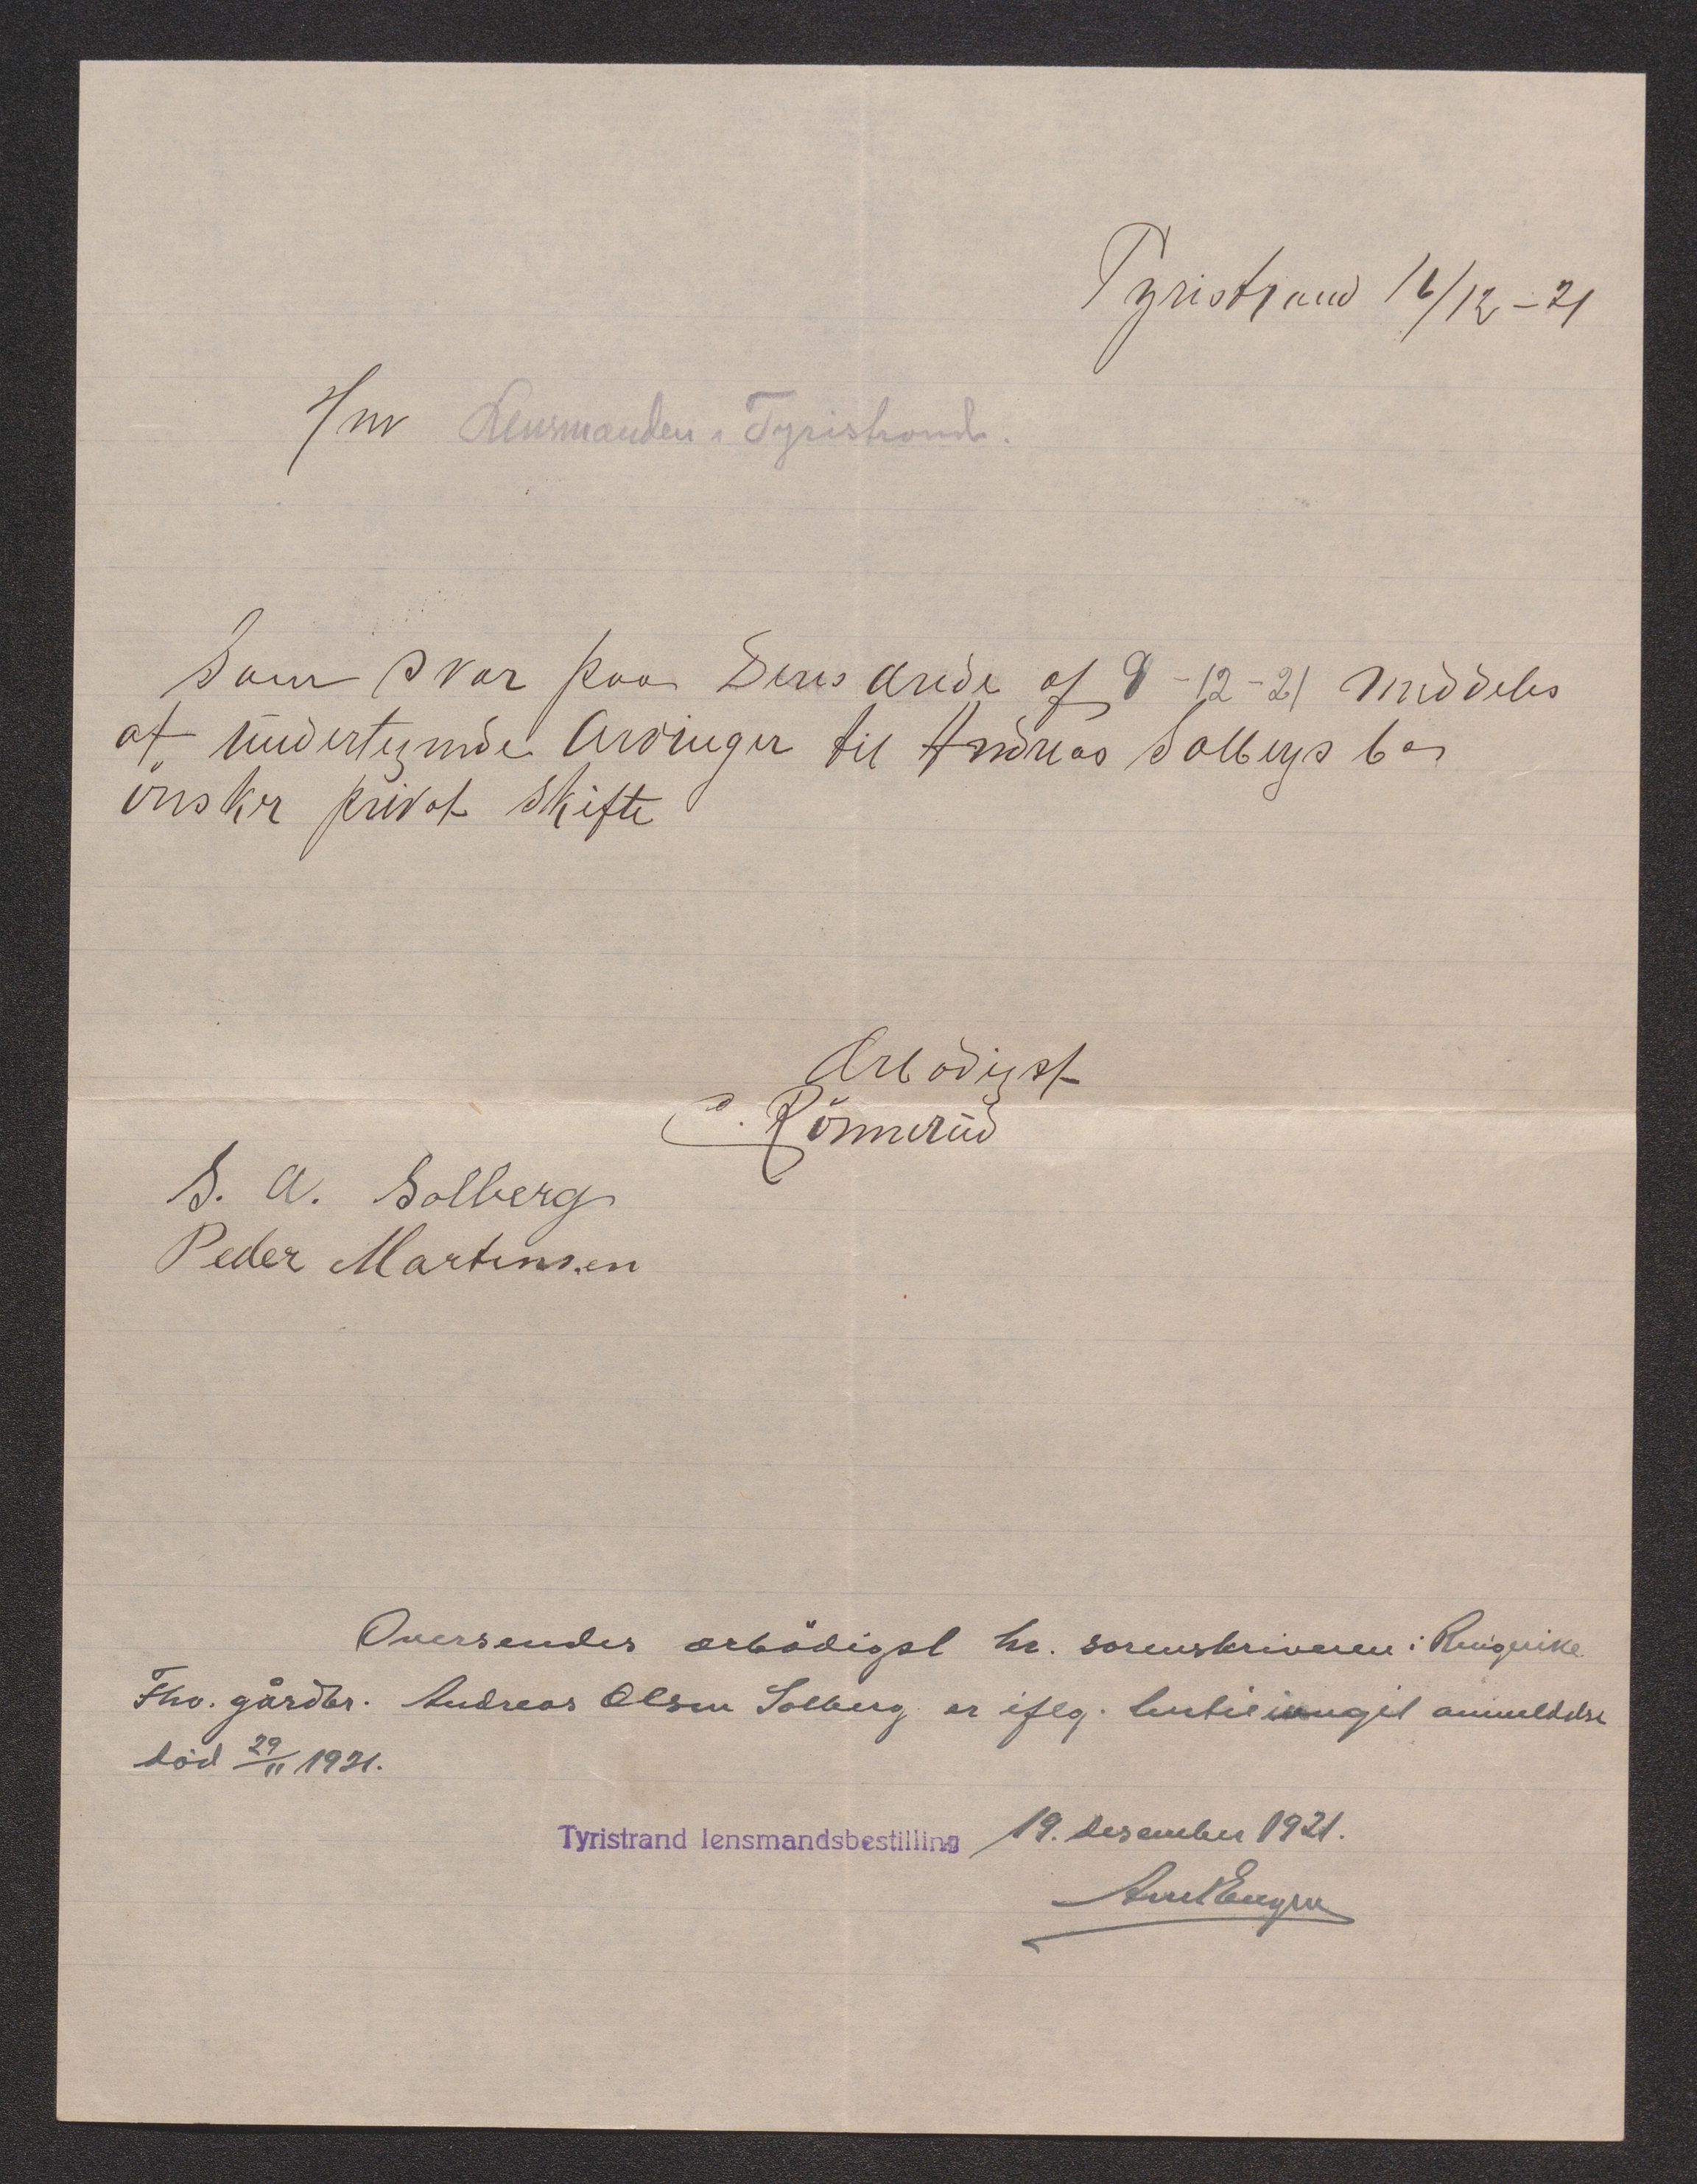 Tyristrand 16/12-21
Hr Lensmanden i Tyristrand.
Som svar paa Deres ærede af 9-12-21 meddeles
at undertegnede arvinger til Andreas Solbergs bo
önsker privat skifte
Ærbödigst
C. Rönnerud
S. A. Solberg
Peder Martinsen
Oversendes ærbödigst hr. sorenskriveren i Ringerike
Fhv. gårdbr. Andreas Olsen Solberg er iflg. hertil anmeldelse
död 29/11 1921.
Tyristrand lensmandsbestilling 19. desember 1921.